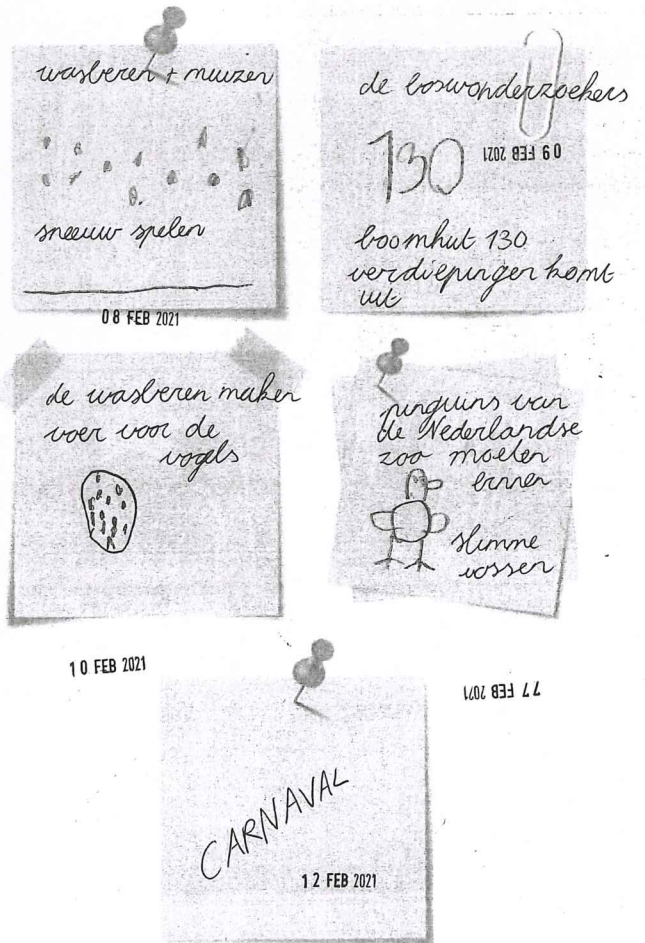 wasberen + muizen
sneeuw spelen
08 FEB 2021
de boswonderzoekers
130
09 FEB 2021
boomhut 130
verdiepingen komt
uit
de wasberen maken
voer voor de
vogels
10 FEB 2021
pinguins van
de Nederlandse
zoo moeten
binnen
slimme
vossen
11 FEB 2021
CARNAVAL
12 FEB 2021